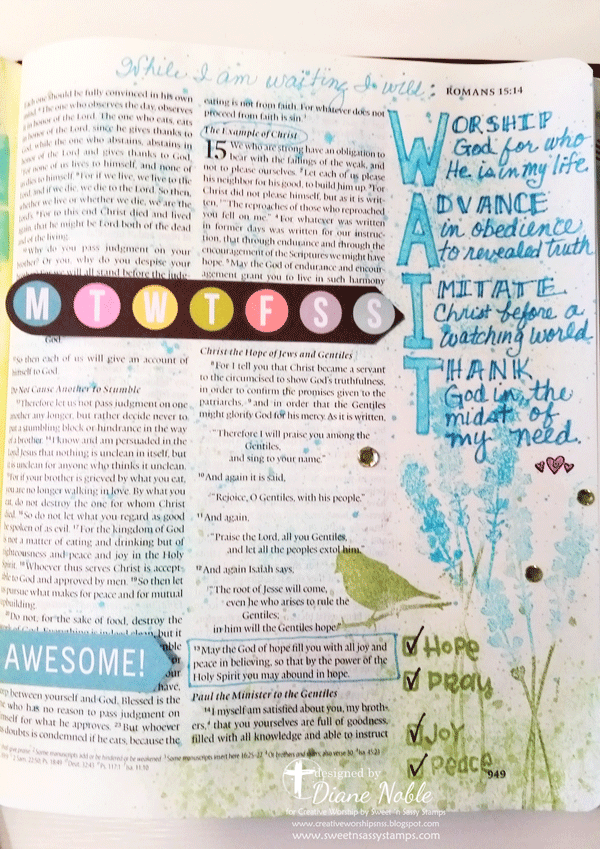 While I am waiting I will:
ROMANS 15:14
Each one should be fully convinced in his own
mind. 6 The one who observes the day, observes
it in honor of the Lord. The one who eats, eats
in honor of the Lord, since he gives thanks to
God, while the one who abstains, abstains in
honor of the Lord and gives thanks to God.
7 For none of us lives to himself, and none of
us dies to himself. 8 For if we live, we live to the
Lord, and if we die, we die to the Lord. So then,
whether we live or whether we die, we are the
Lord's. 9 For to this end Christ died and lived
again, that he might be Lord both of the dead
and of the living.
10 Why do you pass judgment on your
brother? Or you, why do you despise your
we will all stand before the judg-
God.
12 So then each of us will give an account of
himself to God.
Do Not Cause Another to Stumble
13 Therefore let us not pass judgment on one
another any longer, but rather decide never to
put a stumbling block or hindrance in the way
of a brother. 14 I know and am persuaded in the
Lord Jesus that nothing is unclean in itself, but
it is unclean for anyone who thinks it unclean.
15 For if your brother is grieved by what you eat,
you are no longer walking in love. By what you
eat, do not destroy the one for whom Christ
died. 16 So do not let what you regard as good
be spoken of as evil. 17 For the kingdom of God
is not a matter of eating and drinking but of
righteousness and peace and joy in the Holy
Spirit. 18 Whoever thus serves Christ is accept-
able to God and approved by men. 19 So then let
us pursue what makes for peace and for mutual
upbuilding.
20 Do not, for the sake of food, destroy the
but it
have,
keep between yourself and God. Blessed is the
one who has no reason to pass judgment on
himself for what he approves. 23 But whoever
has doubts is condemned if he eats, because the
eating is not from faith. For whatever does not
proceed from faith is sin.
The Example of Christ
15 We who are strong have an obligation to
bear with the failings of the weak, and
not to please ourselves. 2 Let each of us please
his neighbor for his good, to build him up. 3 For
Christ did not please himself, but as it is writ-
ten, "The reproaches of those who reproached
you fell on me." 4 For whatever was written
in former days was written for our instruc-
tion, that through endurance and through the
encouragement of the Scriptures we might have
hope. 5 May the God of endurance and encour-
agement grant you to live in such harmony
M T W T F S S
Christ the Hope of Jews and Gentiles
8 For I tell you that Christ became a servant
to the circumcised to show God's truthfulness,
in order to confirm the promises given to the
patriarchs, 9 and in order that the Gentiles
might glorify God for his mercy. As it is written,
"Therefore I will praise you among the
Gentiles,
and sing to your name."
10 And again it is said,
"Rejoice, O Gentiles, with his people."
11 And again,
"Praise the Lord, all you Gentiles,
and let all the peoples extol him."
12 And again Isaiah says,
"The root of Jesse will come,
even he who arises to rule the
Gentiles;
in him will the Gentiles hope."
13 May the God of hope fill you with all joy and
peace in believing, so that by the power of the
Holy Spirit you may abound in hope.
Paul the Minister to the Gentiles
14 I myself am satisfied about you, my broth-
ers, that you yourselves are full of goodness,
filled with all knowledge and able to instruct
WORSHIP
God for who
He is in my life
ADVANCE
in obedience
to revealed truth
IMITATE
Christ before a
watching world.
THANK
God in the
midst of
my need.
AWESOME!
Hope
pray
Joy
peace
949
designed by
Diane Noble
for Creative Worship by Sweet 'n Sassy Stamps
www.creativeworshipsnss.blogspot.com
www.sweetnsassystamps.com